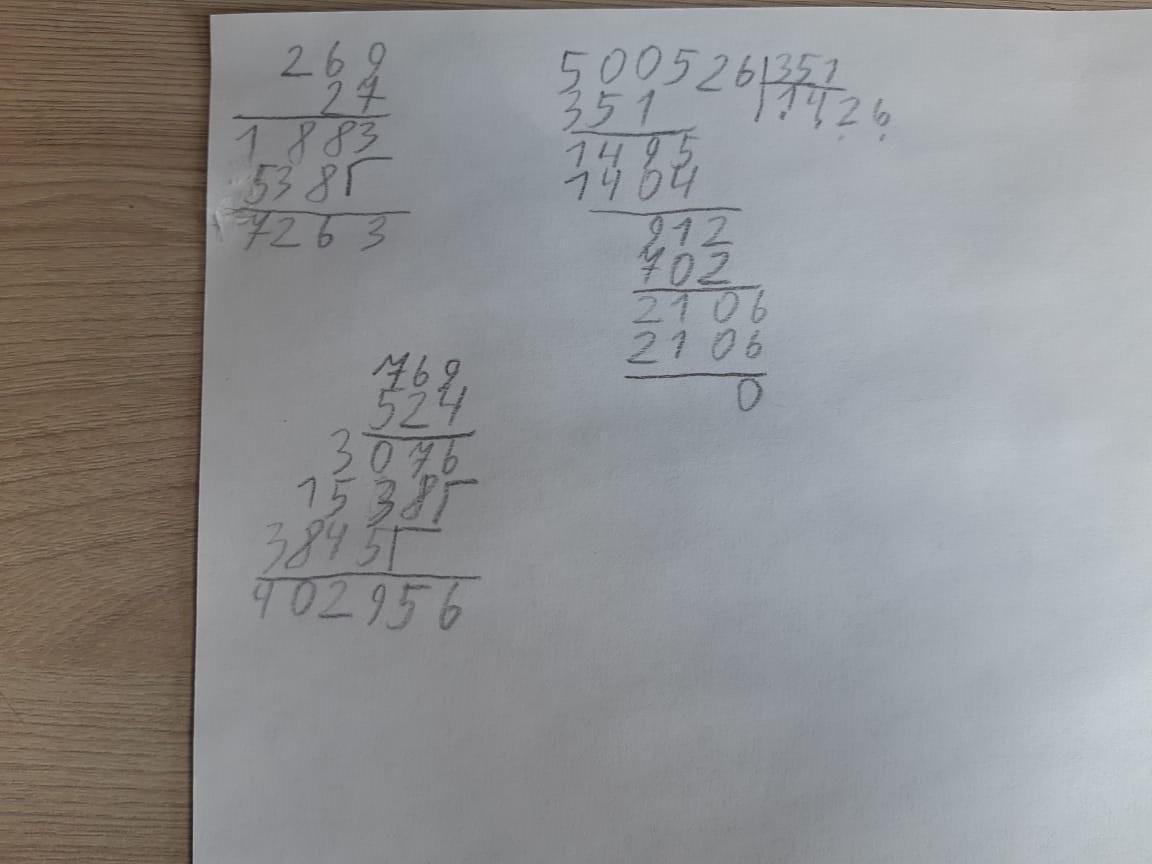 269
27
1883
538
7263
500526 351
351 1426
1495
1404
912
702
2106
2106
0
769
524
3076
1538
3845
402956